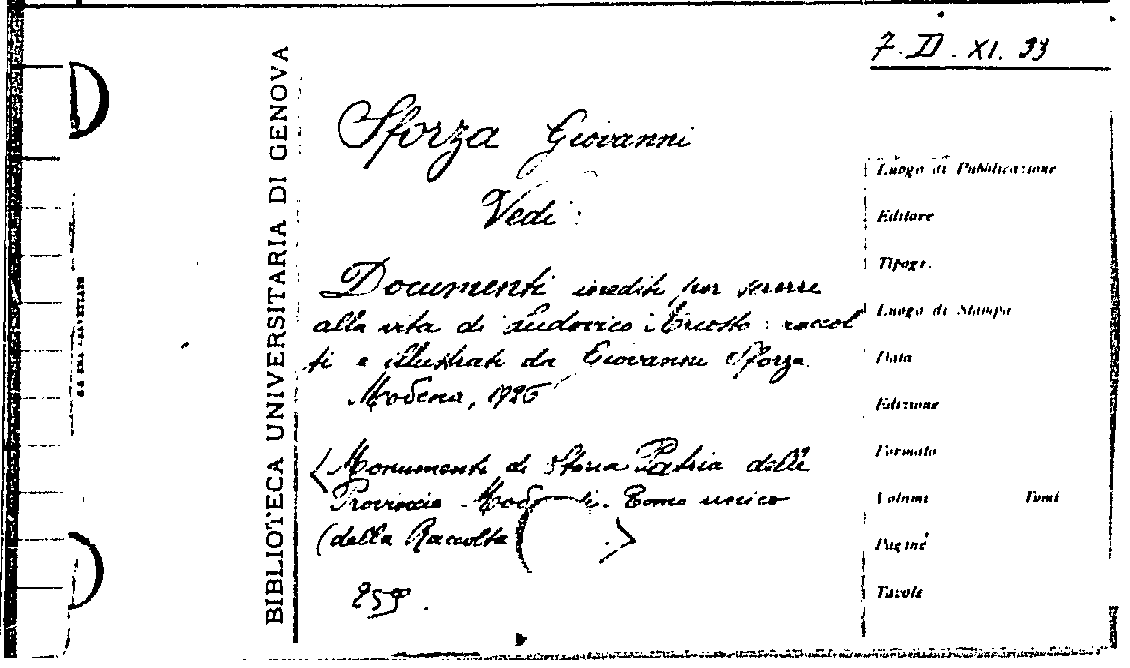 7. D. XI. 33
BIBLIOTECA UNIVERSITARIA DI GENOVA
Sforza Giovanni
Vedi :
Documenti inediti per servire
alla vita di Ludovico Ariosto : raccol
ti e illustrati da Giovanni Sforza.
Modena, 1926
<Monumenti di Storia Patria delle
Provincie Modenesi. Tomo unico
(della Raccolta >
Luogo di Pubblicazione
Editore
Tipogr.
Luogo di Stampa
Data
Edizione
Formato
Volumi Tomi
Pagine
Tavole